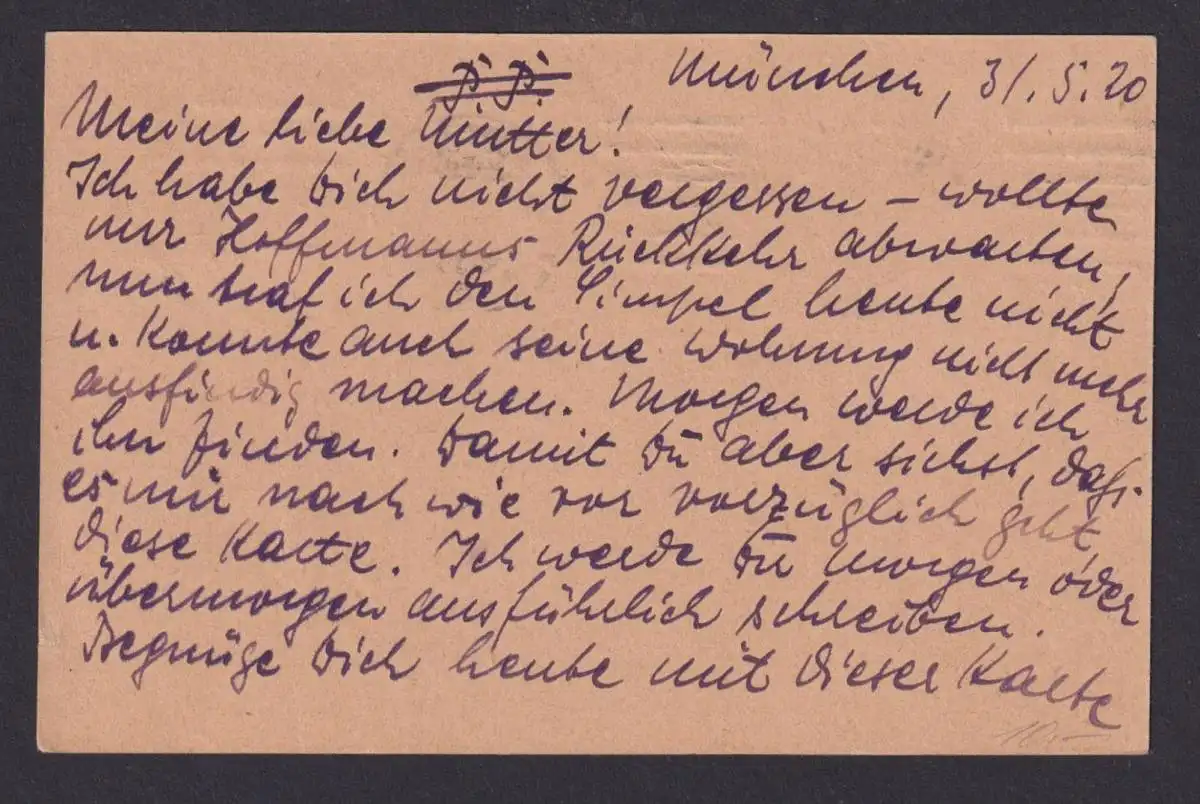 P. P.
München, 31.5.20
Meine liebe Mutter!
Ich habe Dich nicht vergessen – wollte
nur Hoffmanns Rückkehr abwarten,
nun traf ich den Simpel heute nicht
u. konnte auch seine Wohnung nicht mehr
ausfindig machen. Morgen werde ich
ihn finden. Damit Du aber siehst, daß
es mir nach wie vor vorzüglich geht,
diese Karte. Ich werde Dir morgen oder
übermorgen ausführlich schreiben.
Begnüge Dich heute mit dieser Karte
10.–